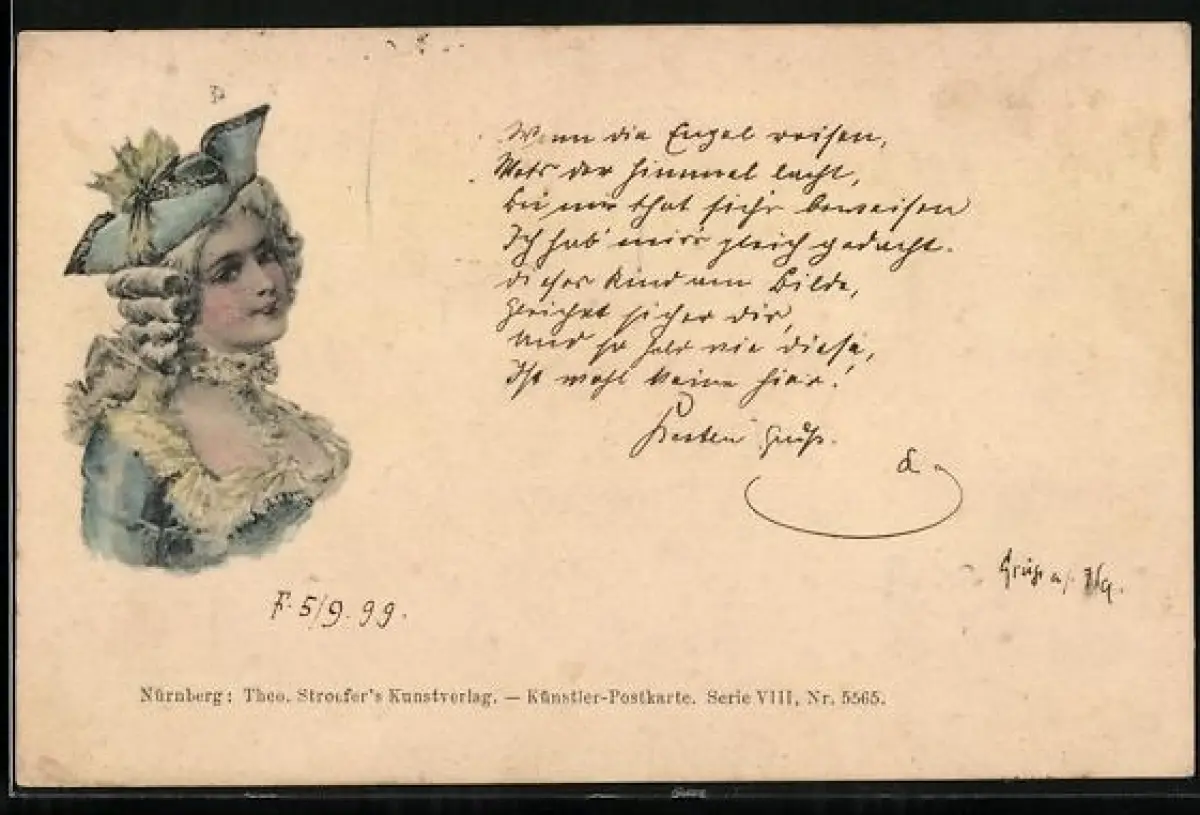 Wenn die Engel reisen,
der Himmel lacht,
Bei mir that sich's beweisen
Ich hab' mir's gleich gedacht.
Dieses Kind am Bilde,
Gleicht sicher dir,
Und so hold wie diese,
Ist wohl keine hier.
Besten Gruß.
F. 5/9.99.
Gruß a/
Nürnberg: Theo. Stroefer's Kunstverlag. — Künstler-Postkarte. Serie VIII, Nr. 5565.